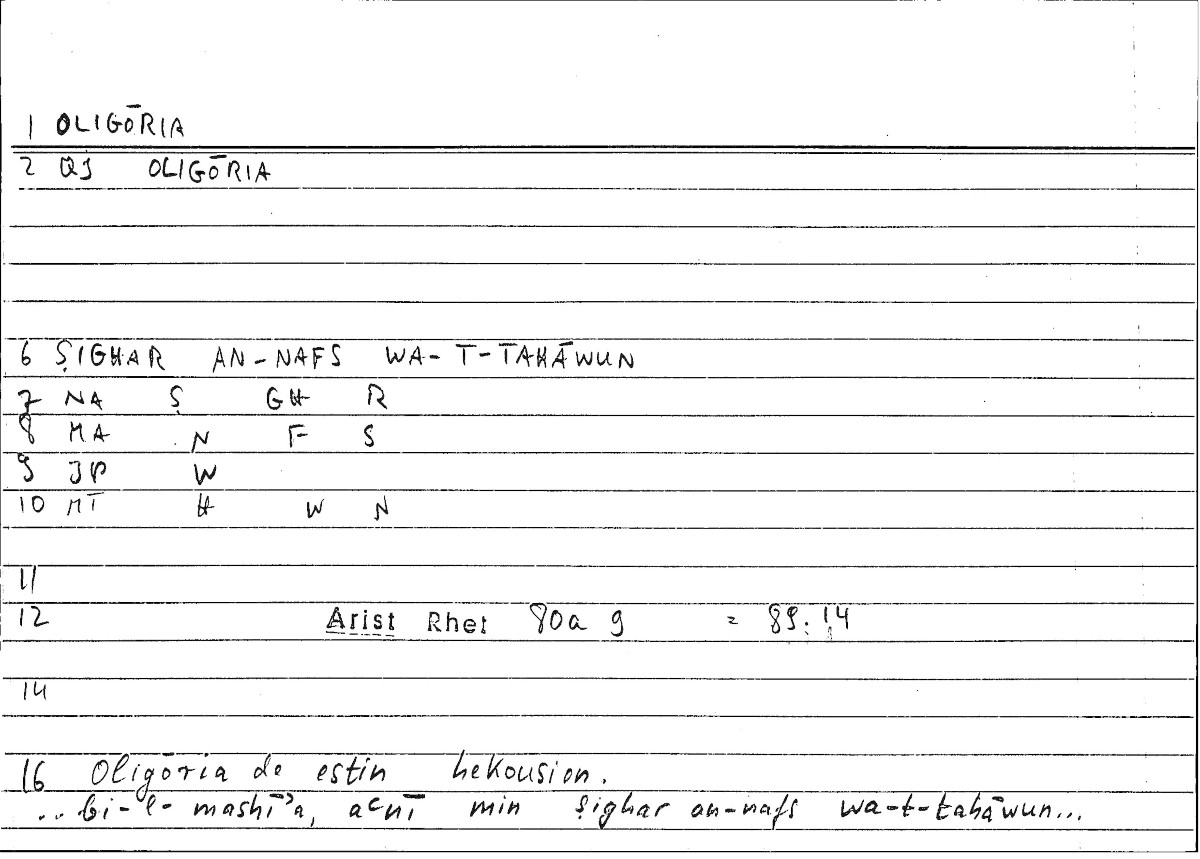 1 OLIGŌRIA
2 QJ OLIGŌRIA
6 ṢIGHAR AN-NAFS WA-T-TAHĀWUN
7 NA Ṣ GH R
8 MA N F S
9 JP W
10 MT H W N
11
12 Arist Rhet 80a 9 = 89.14
14
16 Oligōria de estin hekousion.
..bi-l-mashī'a, acnī min ṣighar an-nafs wa-t-tahāwun...